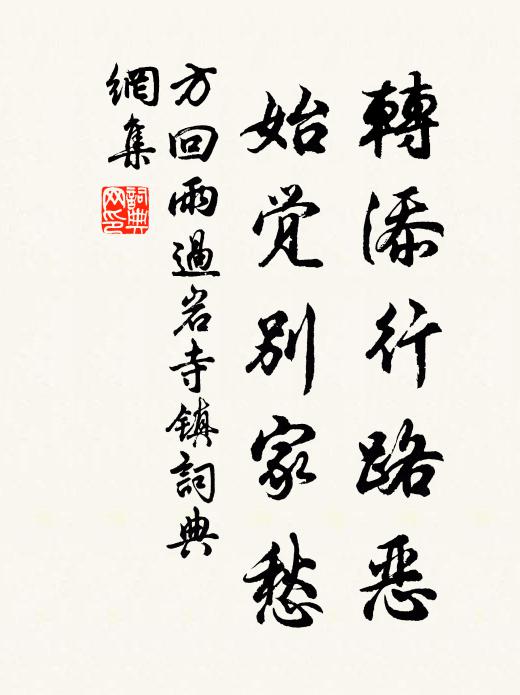 轉添行路惡
始觉別家愁
方回雨過岩寺镇詞典
網集
詞典
网印